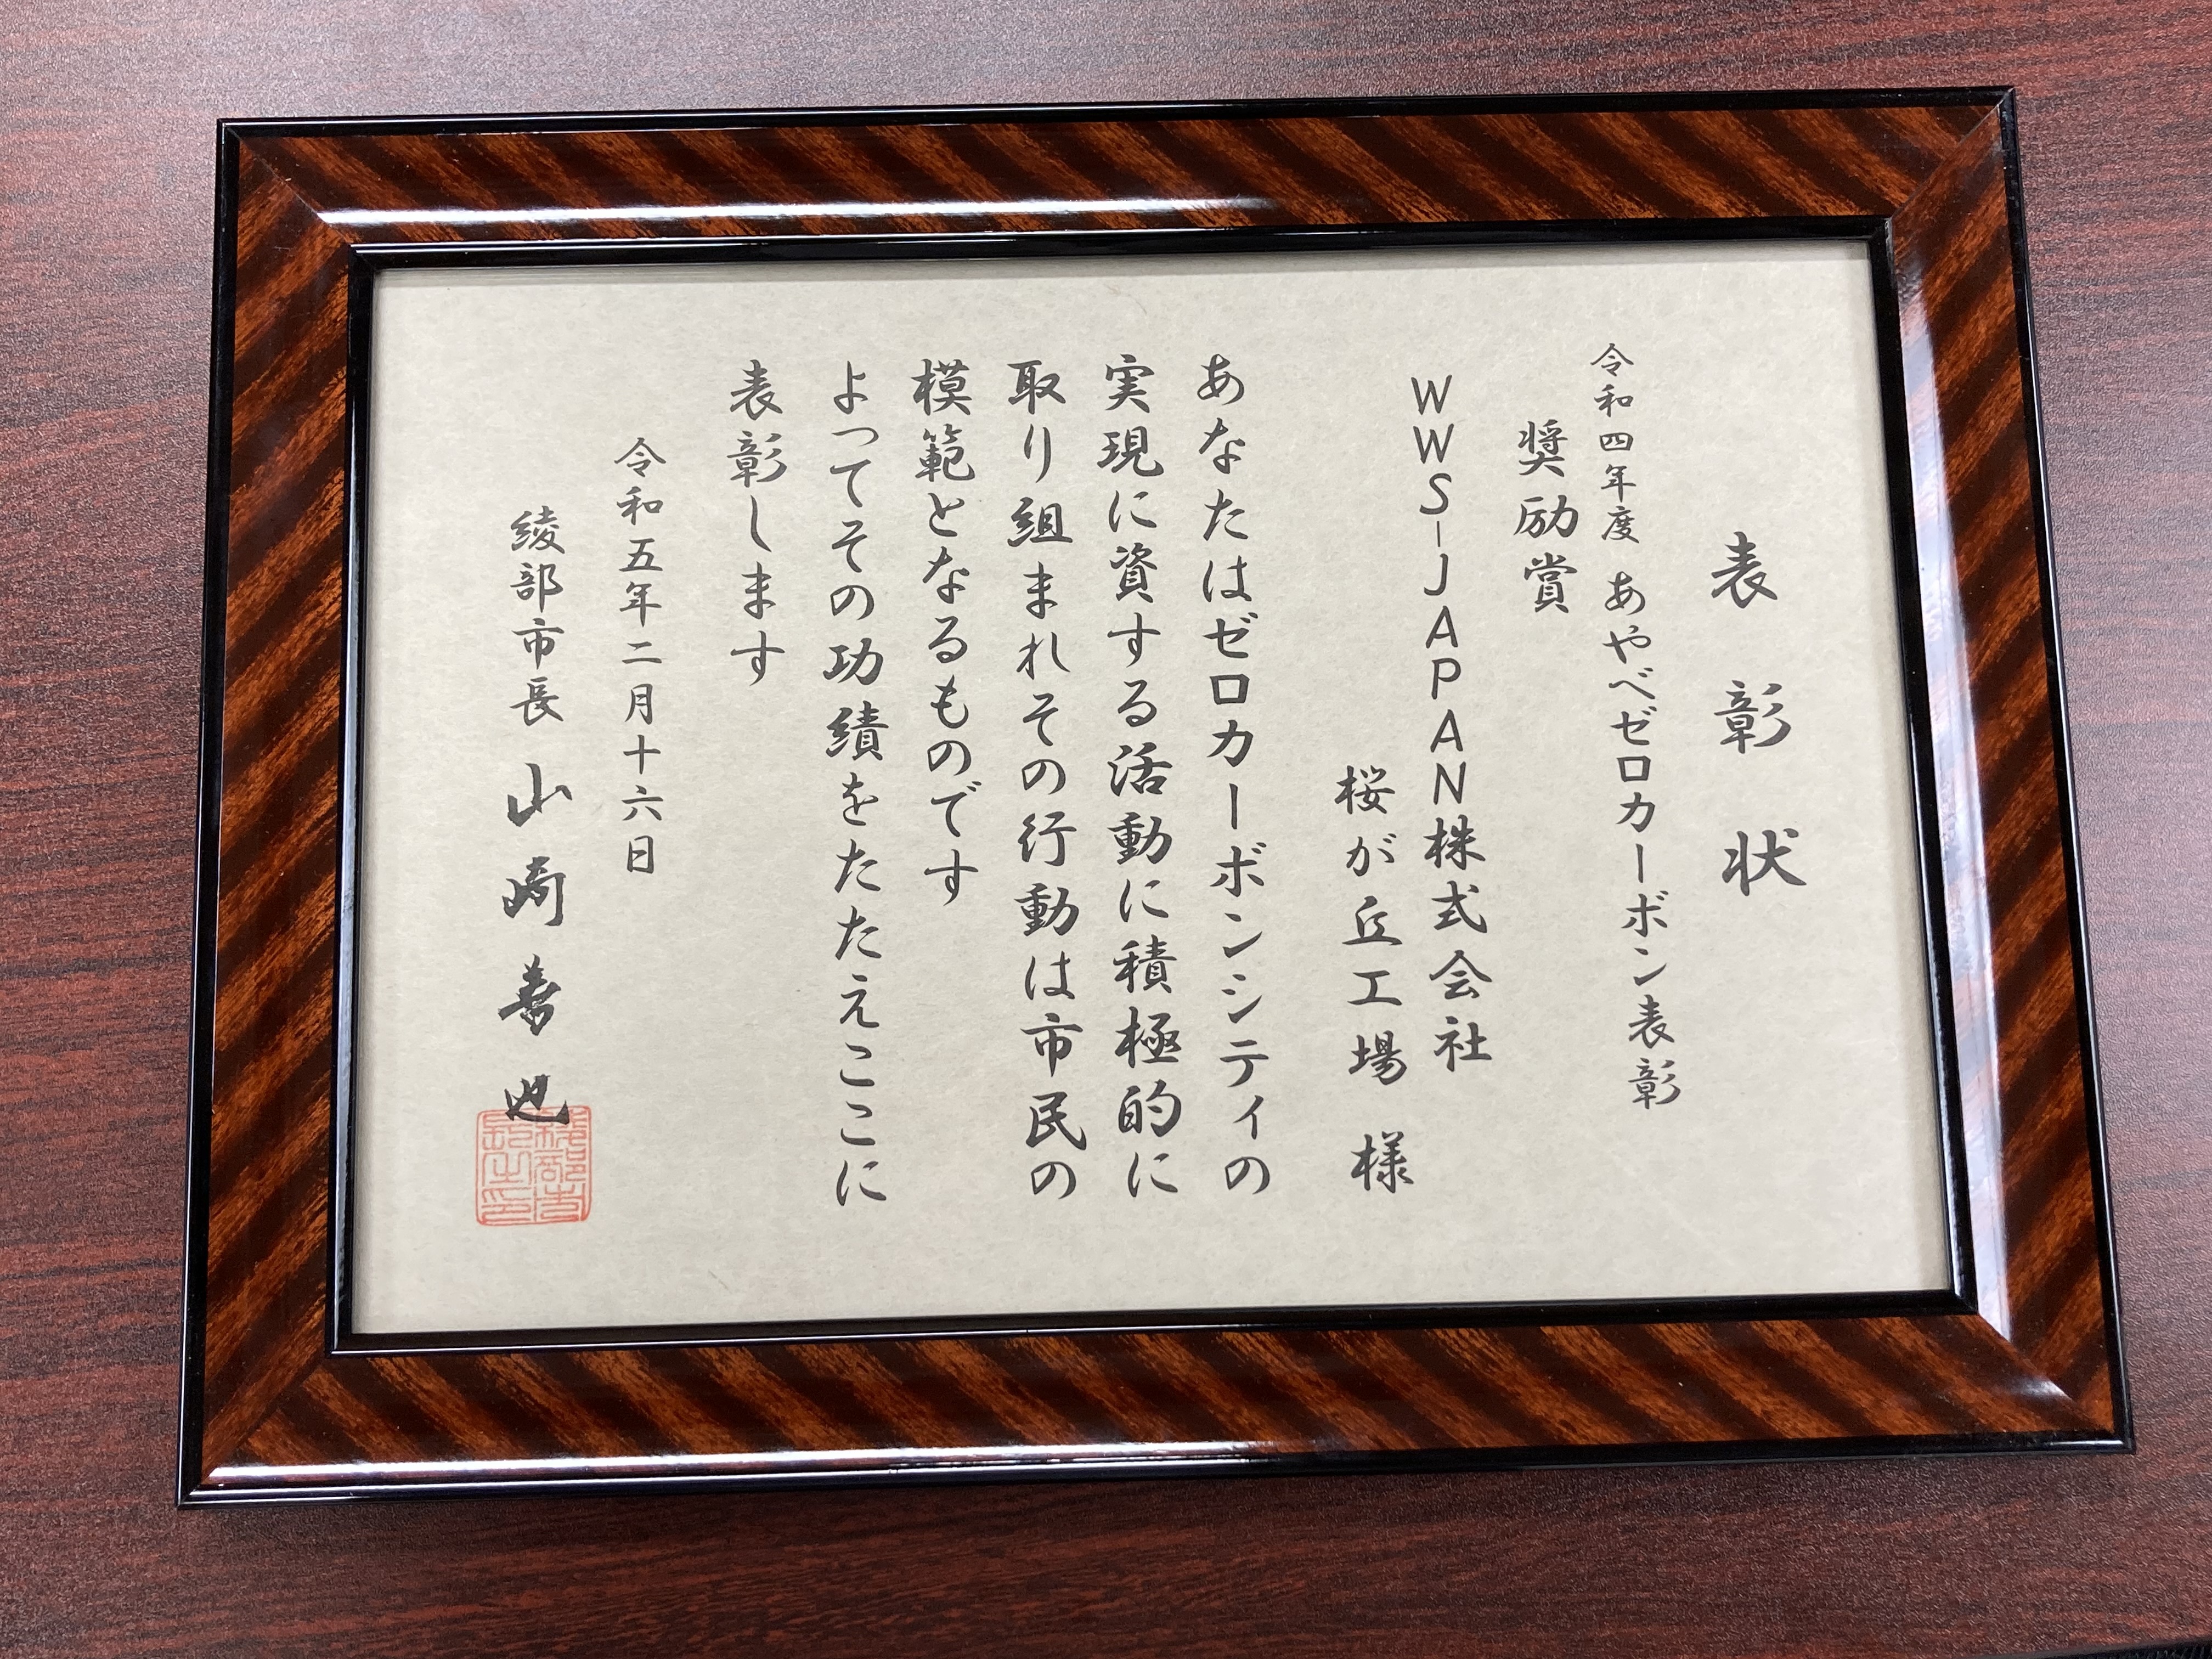 表彰状
令和四年度 あやべゼロカーボン表彰
奨励賞
WWS-JAPAN株式会社
桜が丘工場 様
あなたはゼロカーボンシティの
実現に資する活動に積極的に
取り組まれその行動は市民の
模範となるものです
よってその功績をたたえここに
表彰します
令和五年二月十六日
綾部市長 山崎善也
綾部市
長之印